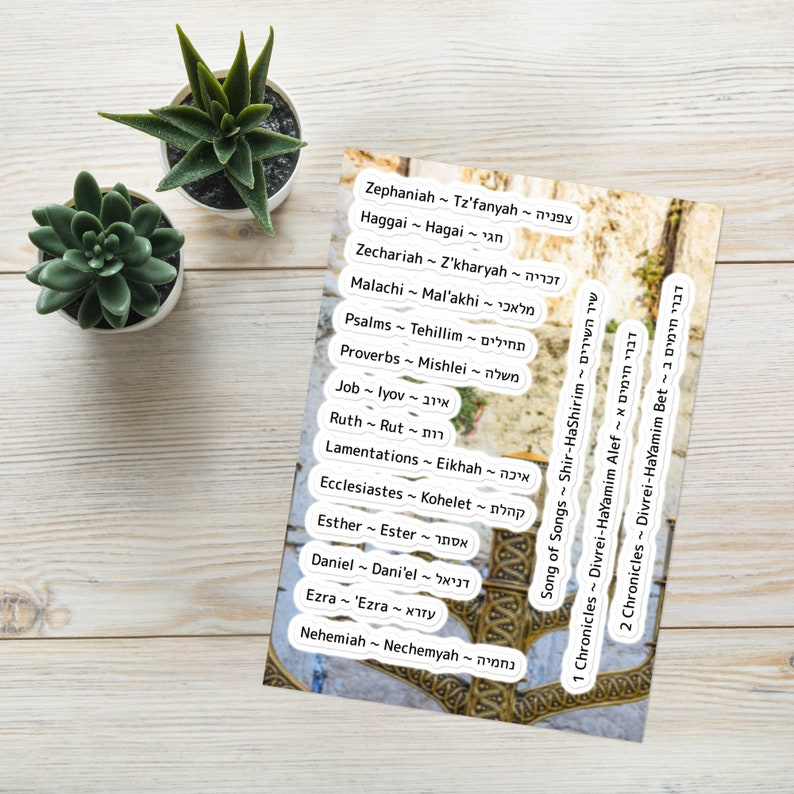 Zephaniah ~ Tz'fanyah ~ צפניה
Haggai ~ Hagai ~ חגי
Zechariah ~ Z'kharyah ~ זכריה
Malachi ~ Mal'akhi ~ מלאכי
Psalms ~ Tehillim ~ תחילים
Proverbs ~ Mishlei ~ משלה
Job ~ Iyov ~ איוב
Ruth ~ Rut ~ רות
Lamentations ~ Eikhah ~ איכה
Ecclesiastes ~ Kohelet ~ קהלת
Esther ~ Ester ~ אסתר
Daniel ~ Dani'el ~ דניאל
Ezra ~ 'Ezra ~ עזרא
Nehemiah ~ Nechemyah ~ נחמיה
Song of Songs ~ Shir-HaShirim ~ שיר השירים
1 Chronicles ~ Divrei-HaYamim Alef ~ דברי חימים א
2 Chronicles ~ Divrei-HaYamim Bet ~ דברי חימים ב